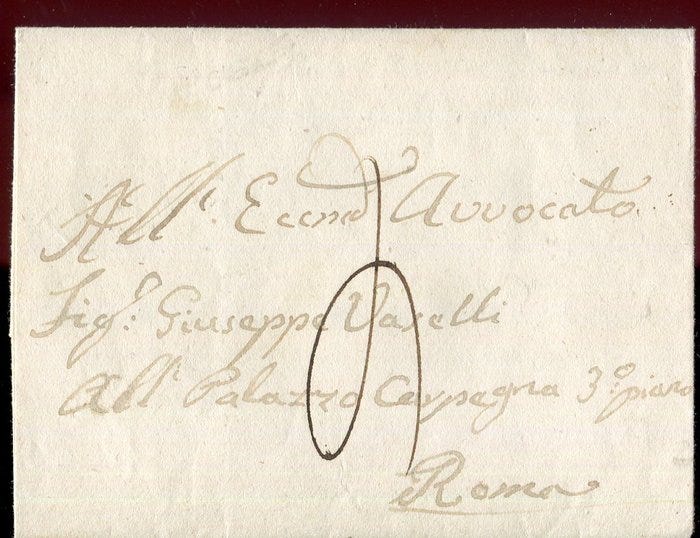 All'. Eccmo Avvocato
Sigr. Giuseppe Vaselli
All' Palazzo Carpegna 3:o piano
Roma